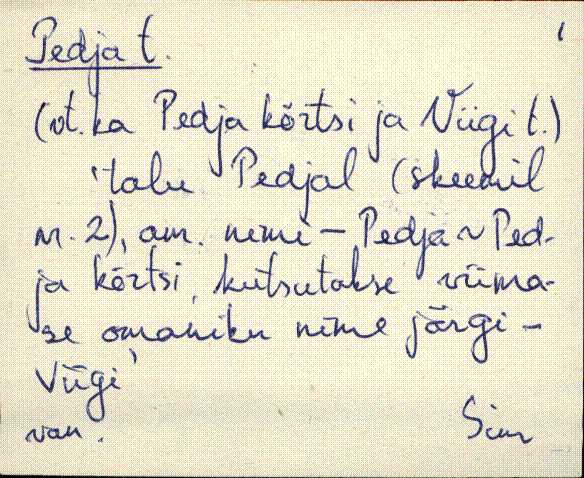 Pedja t.
(vt. ka Pedja kõrtsi ja Viigi t.)
'talu Pedjal (skeemil
nr. 2), am. nimi – Pedja ~ Ped-
ja kõrtsi, kutsutakse viima-
se omaniku nime järgi –
Viigi'
van. Sim